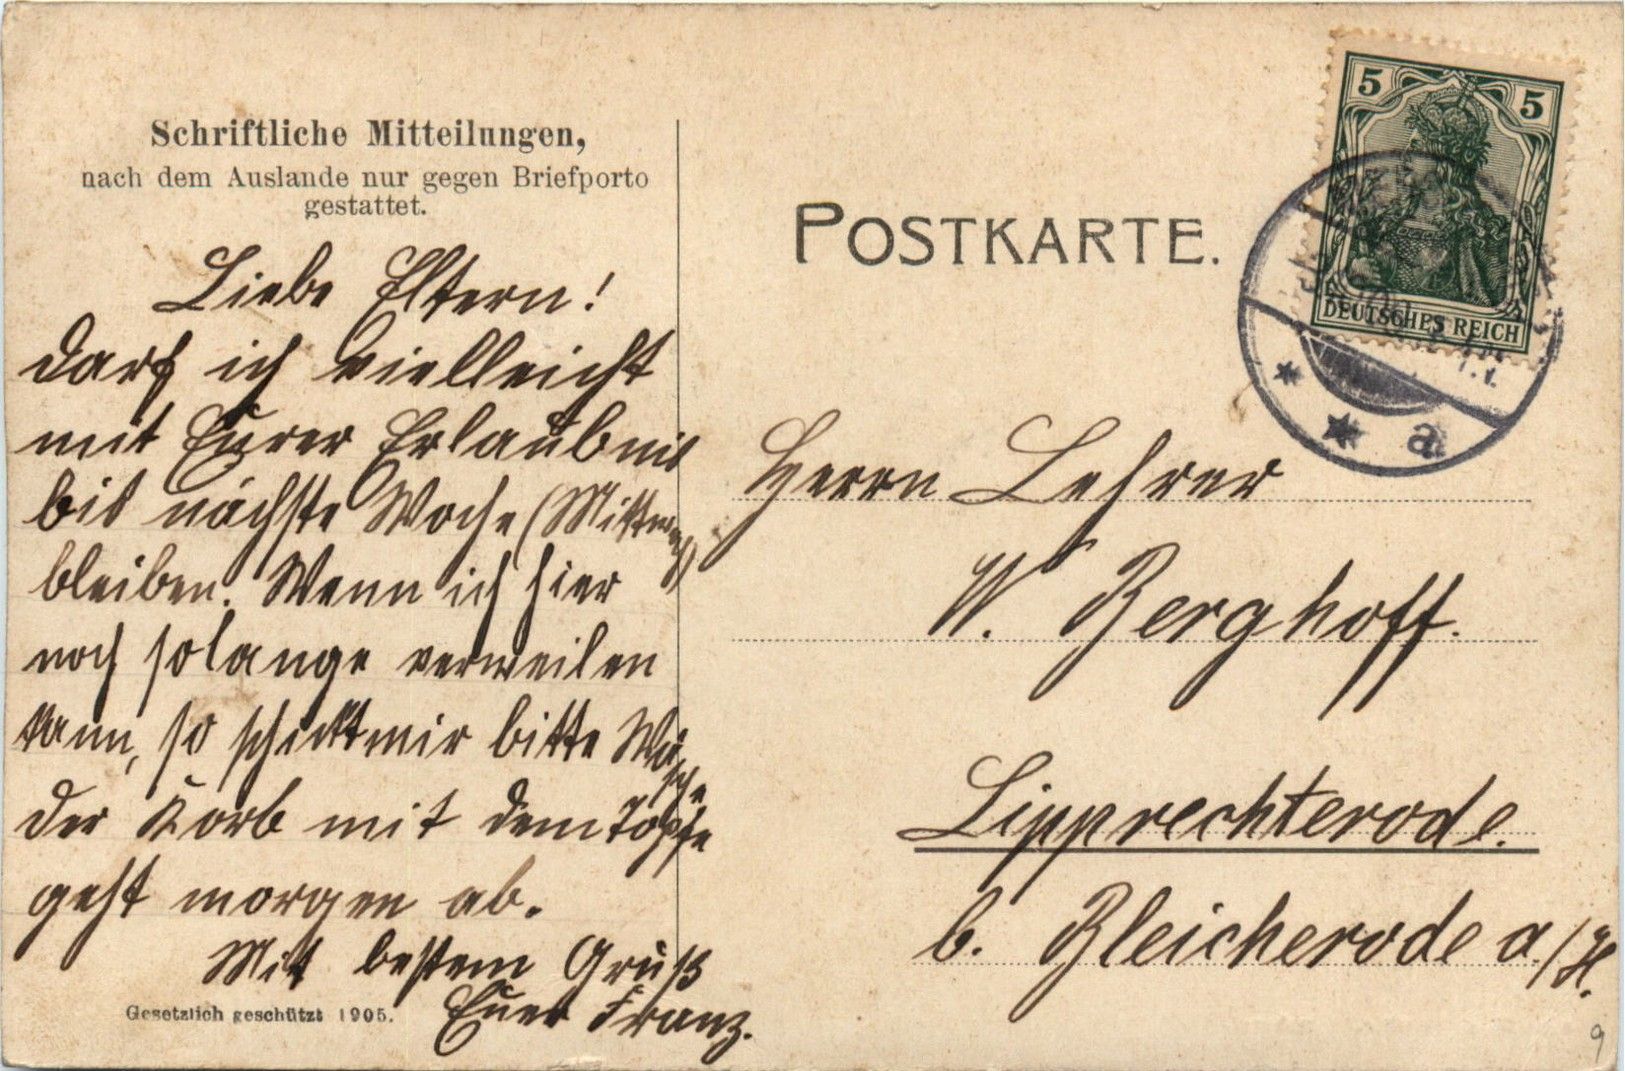 Schriftliche Mitteilungen,
nach dem Auslande nur gegen Briefporto
gestattet.
POSTKARTE.
5 5
DEUTSCHES REICH
a
Liebe Eltern!
Darf ich vielleicht
mit Eurer Erlaubnis
bis nächste Woche (Mittwoch)
bleiben. Wenn ich hier
noch solange verweilen
kann, so schickt mir bitte Wäsche
der Korb mit dem Topfe
geht morgen ab.
Mit bestem Gruß
Euer Franz.
Gesetzlich geschützt 1905.
Herrn Lehrer
W. Berghoff.
Lipprechterode.
b. Bleicherode a/H.
9